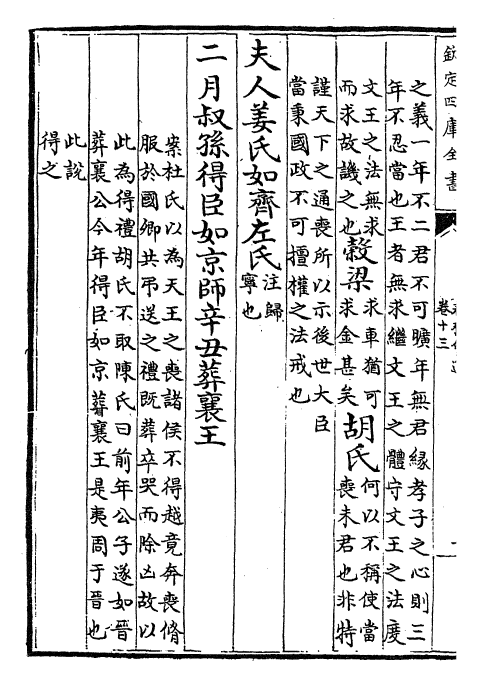 欽定四庫全書
卷十三
之義一年不二君不可曠年無君緣孝子之心則三
年不忍當也王者無求繼文王之體守文王之法度
文王之法無求
而求故譏之也
穀梁
求車猶可
求金甚矣
胡氏
何以不稱使當
喪未君也非特
謹天下之通喪所以示後世大臣
當秉國政不可擅權之法戒也
夫人姜氏如齊左氏
注歸
寧也
二月叔孫得臣如京師辛丑葬襄王
案杜氏以為天王之喪諸侯不得越竟奔喪脩
服於國卿共弔送之禮既葬卒哭而除凶故以
此為得禮胡氏不取陳氏曰前年公子遂如晉
葬襄公今年得臣如京葬襄王是夷周于晉也
此說
得之